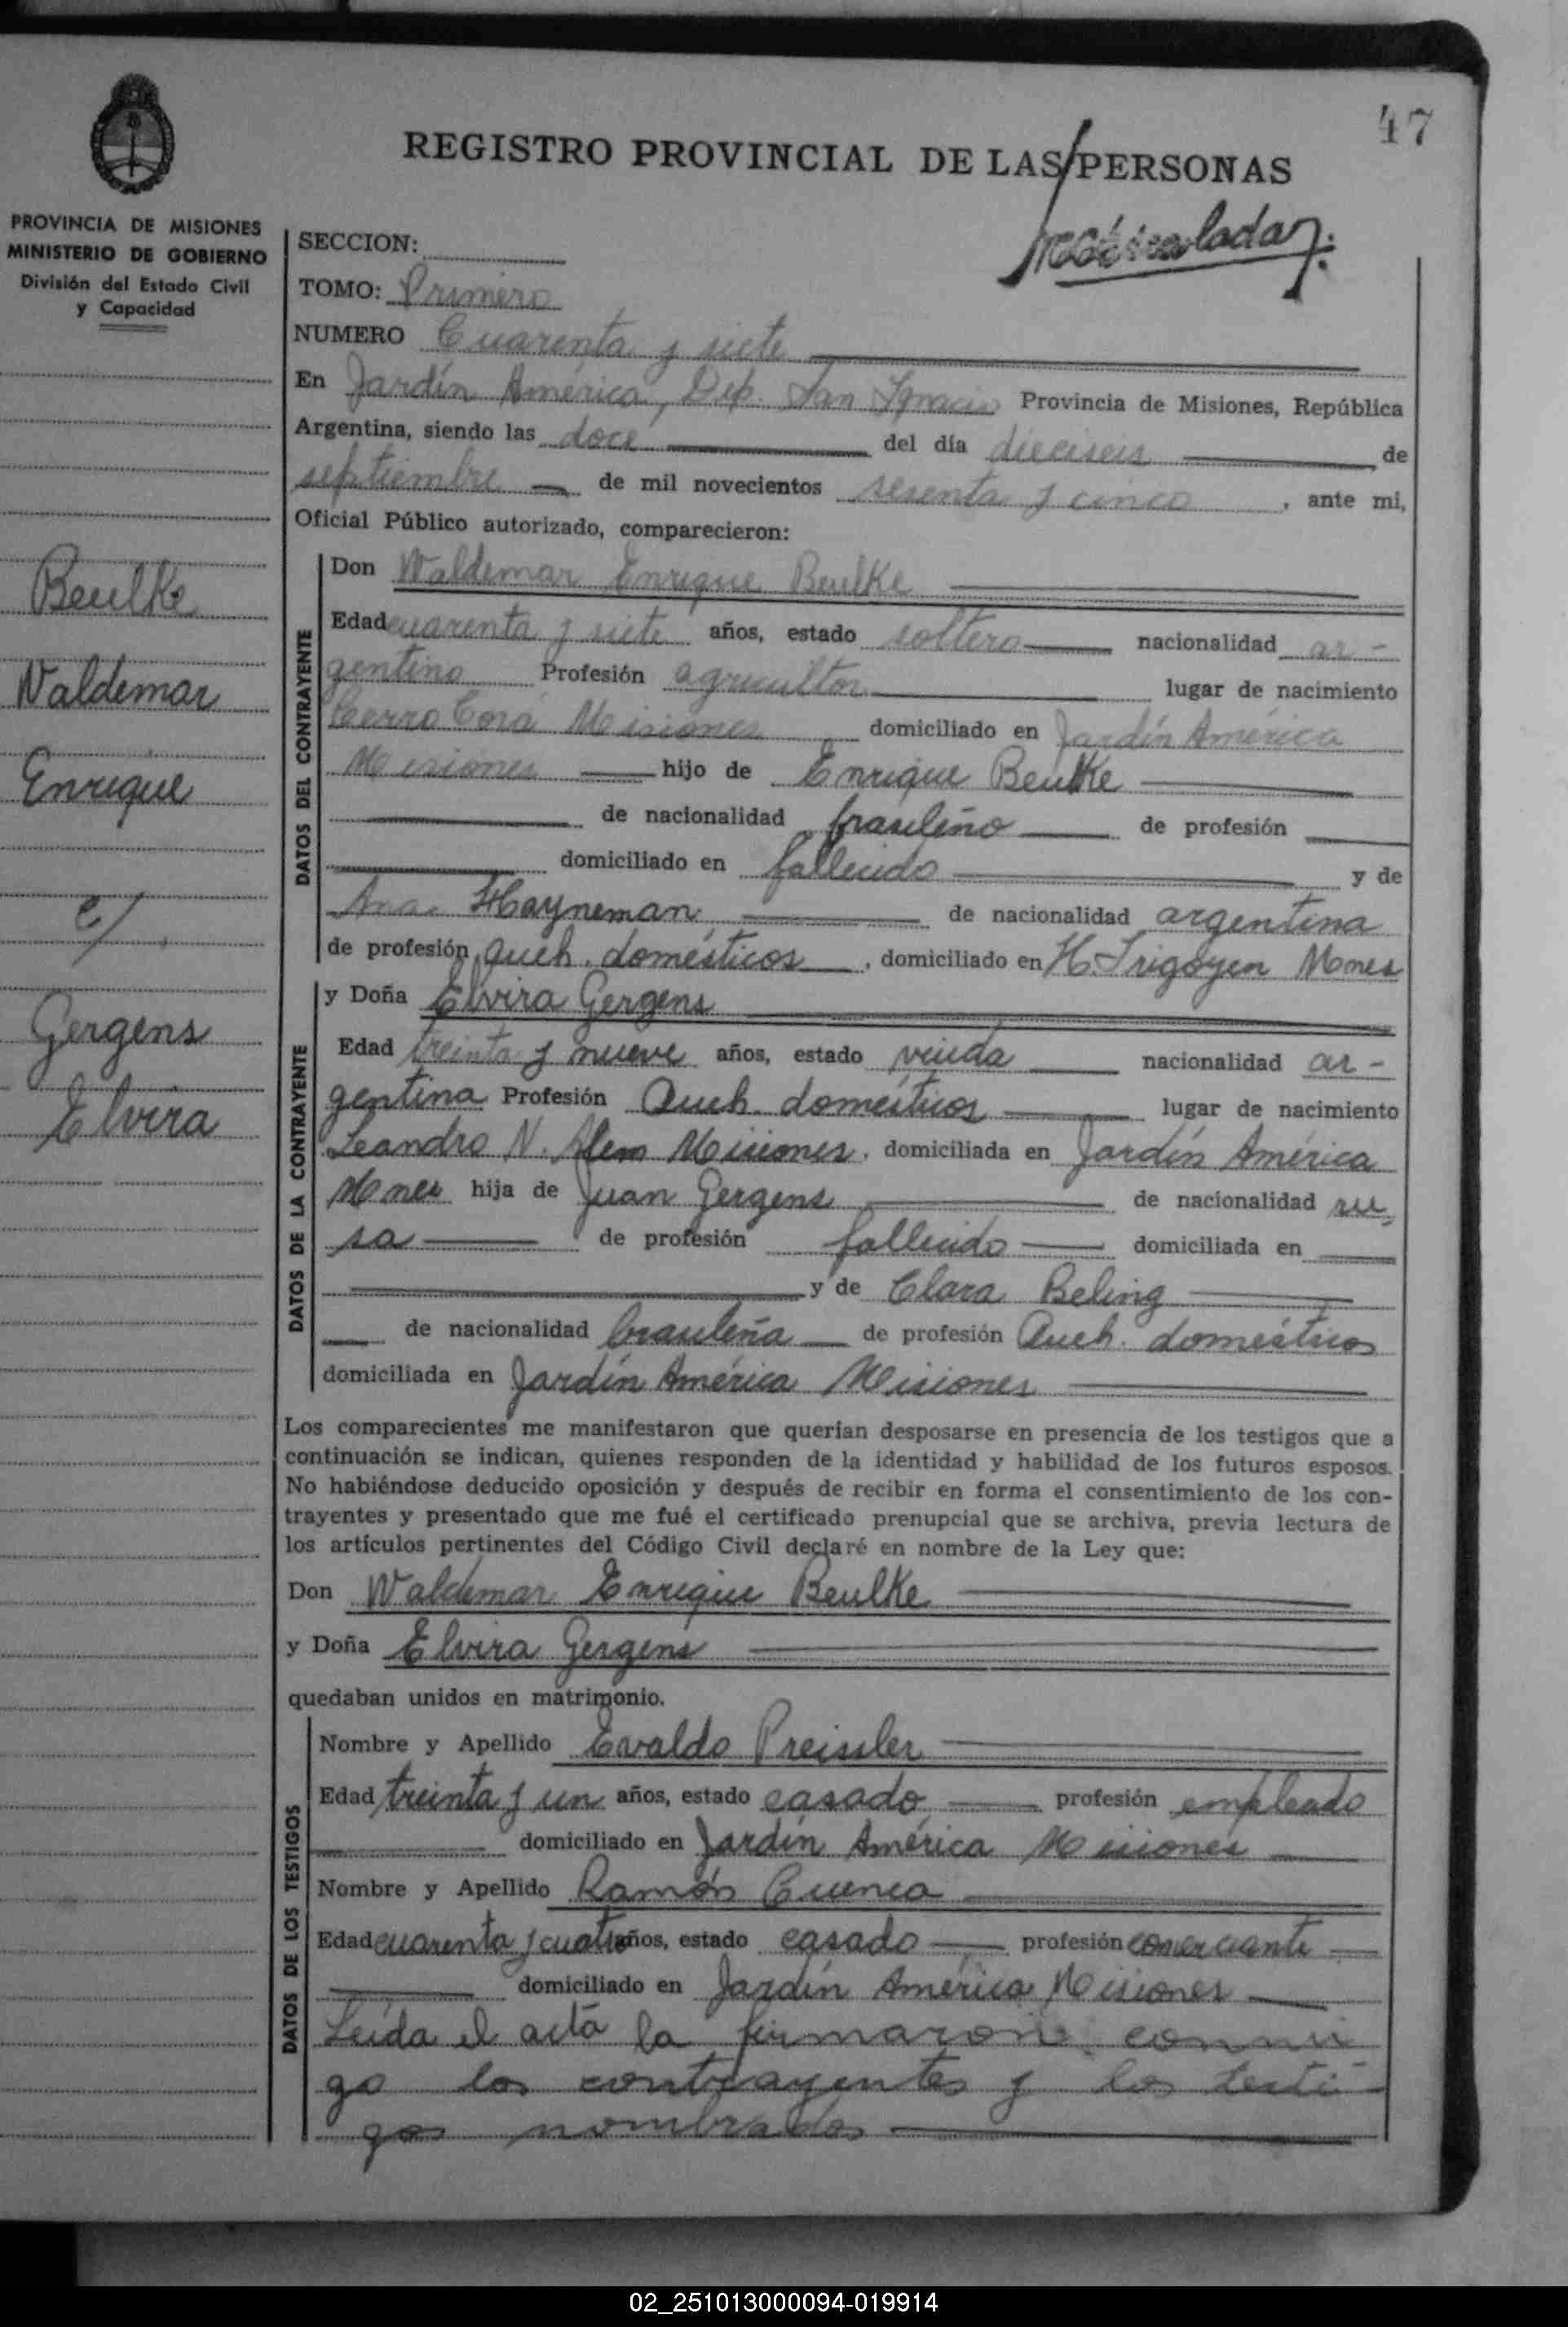 47
REGISTRO PROVINCIAL DE LAS PERSONAS
PROVINCIA DE MISIONES
MINISTERIO DE GOBIERNO
División del Estado Civil
y Capacidad
SECCION:
TOMO: Primero
NUMERO Cuarenta y siete
En Jardín América, Dep. San Ignacio Provincia de Misiones, República
Argentina, siendo las doce del día dieciseis de
septiembre de mil novecientos sesenta y cinco, ante mi,
Oficial Público autorizado, comparecieron:
Beulke
Waldemar
Enrique
c/
Gergens
Elvira
DATOS DEL CONTRAYENTE
Don Waldemar Enrique Beulke
Edad cuarenta y siete años, estado soltero nacionalidad ar-
gentino Profesión agricultor lugar de nacimiento
Cerro Corá Misiones domiciliado en Jardín América
Misiones hijo de Enrique Beulke
de nacionalidad brasileño de profesión
domiciliado en fallecido y de
Ana Hayneman de nacionalidad argentina
de profesión queh. domésticos, domiciliado en H. Irigoyen Mnes
DATOS DE LA CONTRAYENTE
y Doña Elvira Gergens
Edad treinta y nueve años, estado viuda nacionalidad ar-
gentina Profesión Queh. domésticos lugar de nacimiento
Leandro N. Alem Misiones, domiciliada en Jardín América
Mnes hija de Juan Gergens de nacionalidad ru-
sa de profesión fallecido domiciliada en
y de Clara Beling
de nacionalidad brasileña de profesión Queh. domésticos
domiciliada en Jardín América Misiones
Los comparecientes me manifestaron que querían desposarse en presencia de los testigos que a
continuación se indican, quienes responden de la identidad y habilidad de los futuros esposos.
No habiéndose deducido oposición y después de recibir en forma el consentimiento de los con-
trayentes y presentado que me fué el certificado prenupcial que se archiva, previa lectura de
los artículos pertinentes del Código Civil declaré en nombre de la Ley que:
Don Waldemar Enrique Beulke
y Doña Elvira Gergens
quedaban unidos en matrimonio.
DATOS DE LOS TESTIGOS
Nombre y Apellido Evaldo Preissler
Edad treinta y un años, estado casado profesión empleado
domiciliado en Jardín América Misiones
Nombre y Apellido Ramón Cuenca
Edad cuarenta y cuatro años, estado casado profesión comerciante
domiciliado en Jardín América Misiones
Leída el acta la firmaron conmi
go los contrayentes y los testi-
gos nombrados
02_251013000094-019914